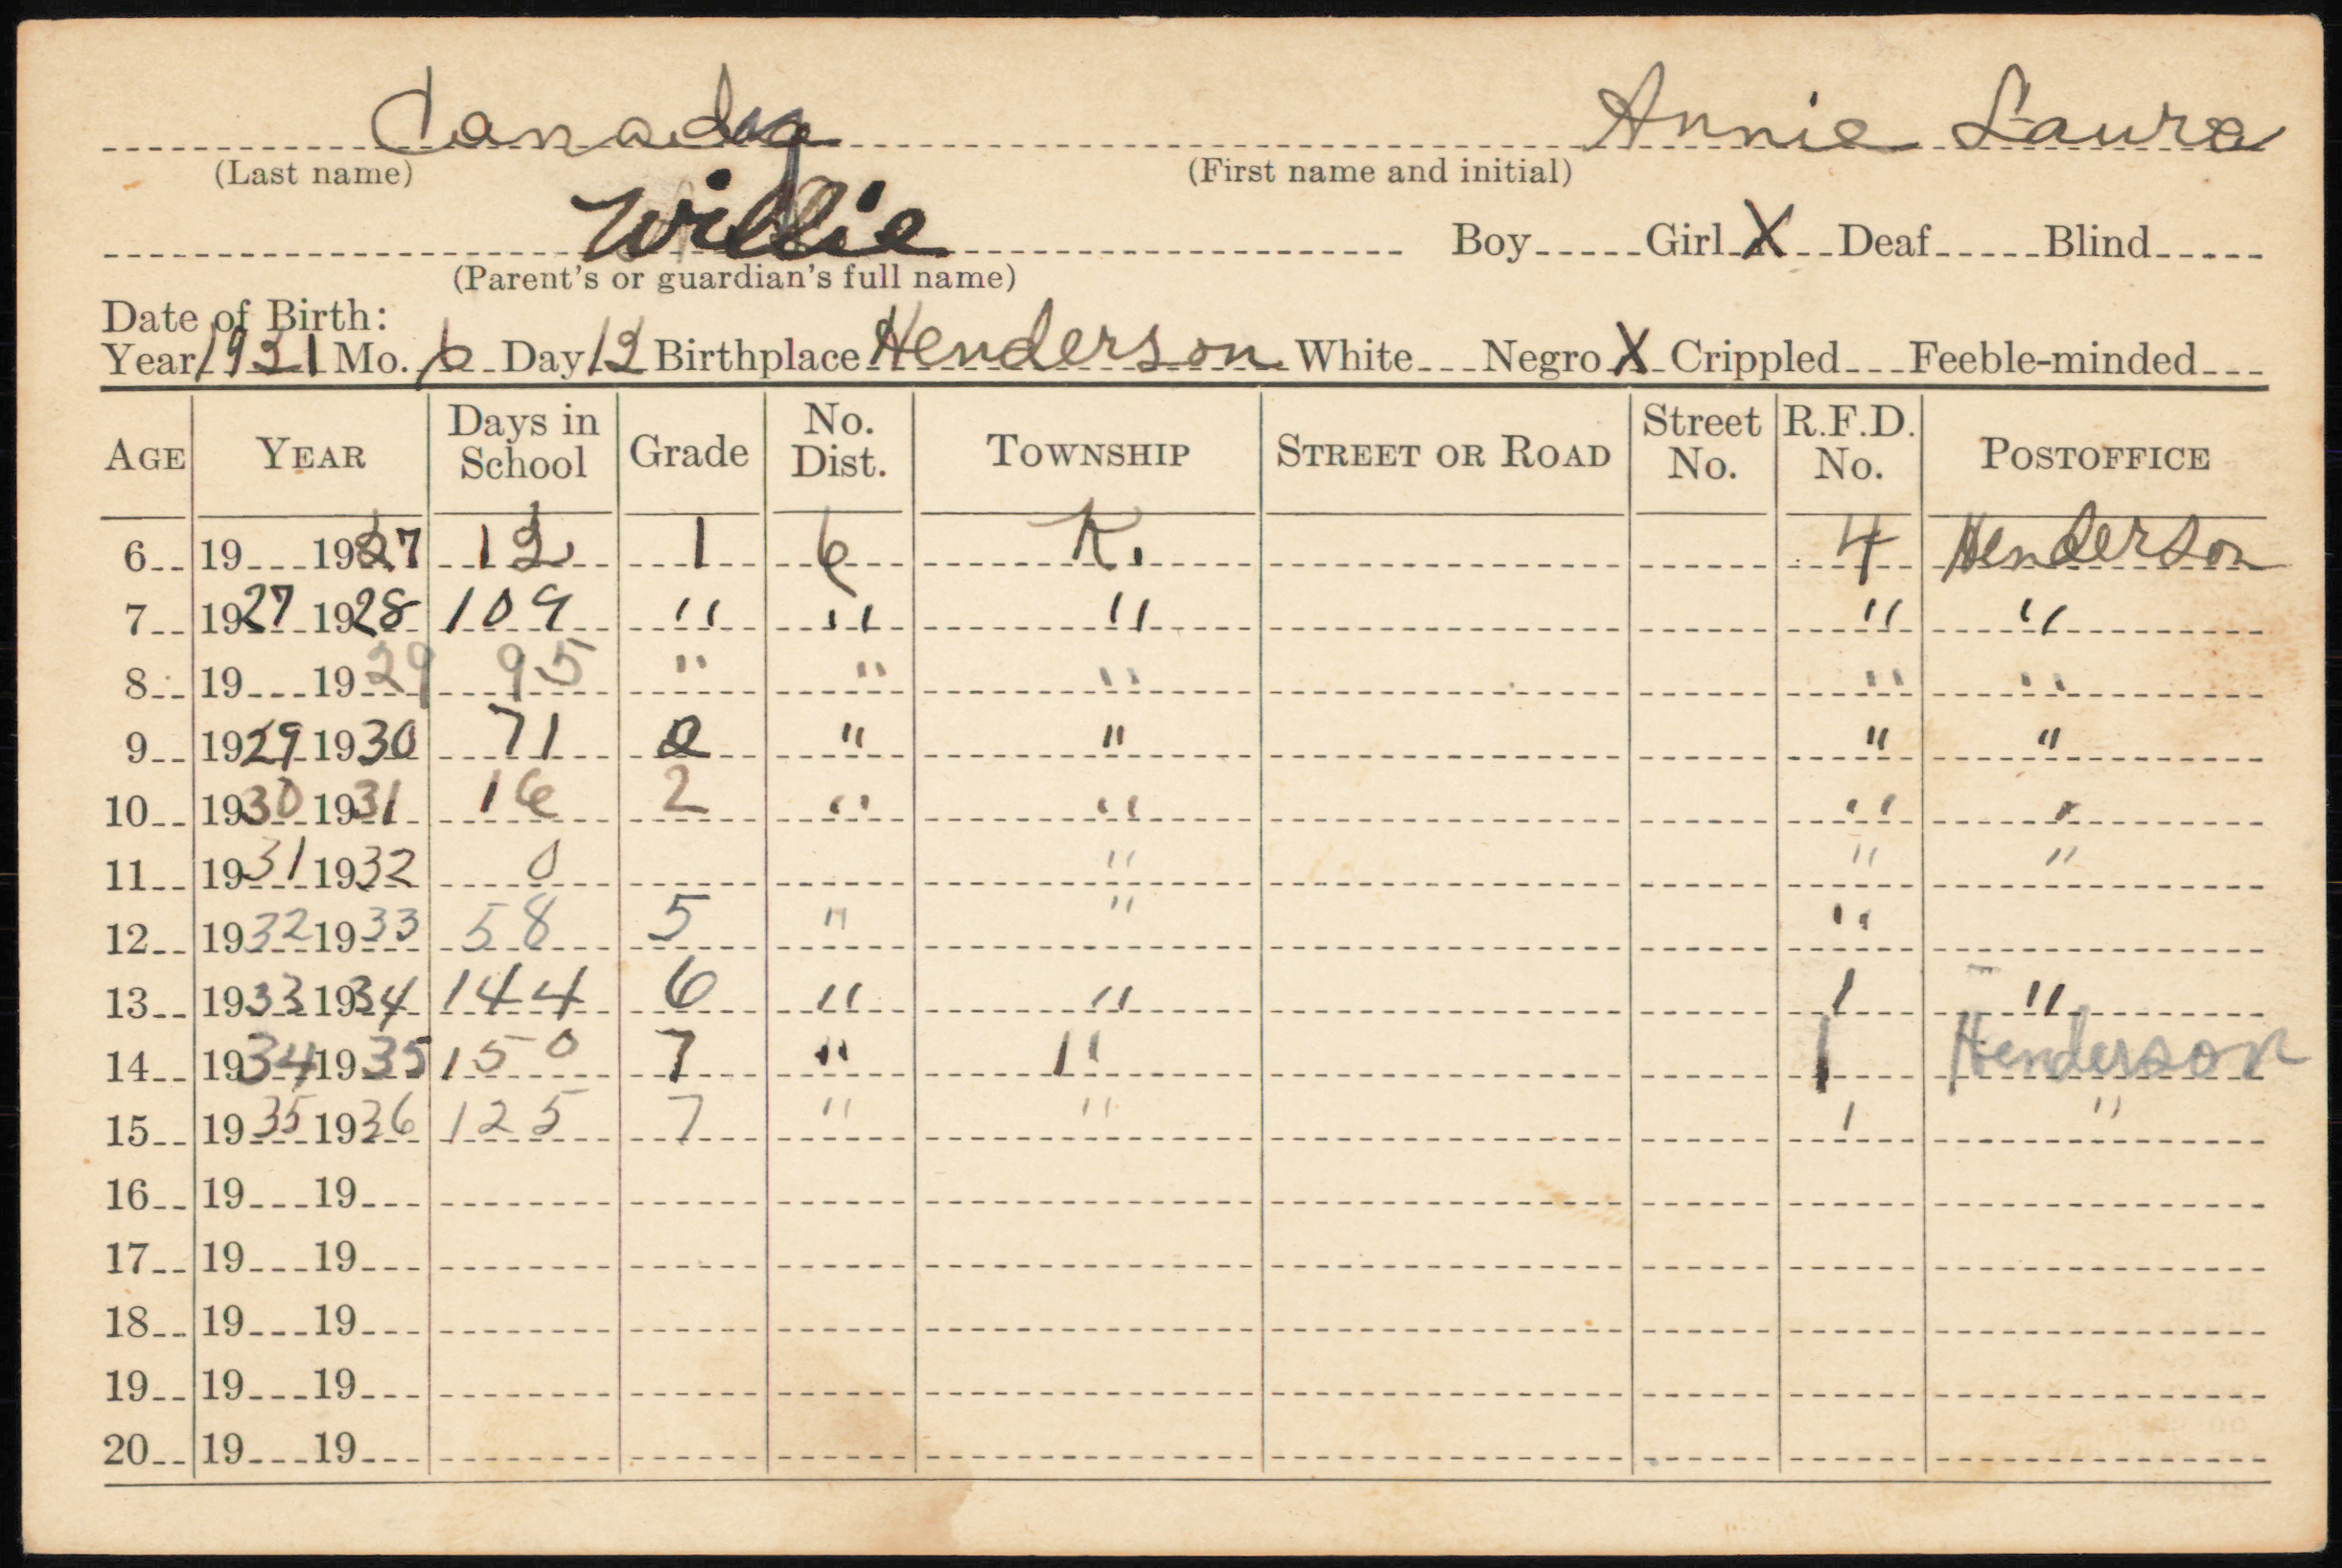 Canady Annie Laura
(Last name) (First name and initial)
Willie Boy Girl X Deaf Blind
(Parent's or guardian's full name)
Date of Birth:
Year 1921 Mo. 6 Day 12 Birthplace Henderson White Negro X Crippled Feeble-minded
AGE YEAR Days in School Grade No. Dist. TOWNSHIP STREET OR ROAD Street No. R.F.D. No. POSTOFFICE
6 19 1927 12 1 6 K. 4 Henderson
7 1927 1928 109 " " " " "
8 19 1929 95 " " " " "
9 1929 1930 71 2 " " " "
10 1930 1931 16 2 " " " "
11 1931 1932 0 " " "
12 1932 1933 58 5 " " "
13 1933 1934 144 6 " " 1 "
14 1934 1935 150 7 " " 1 Henderson
15 1935 1936 125 7 " " 1 "
16 19 19
17 19 19
18 19 19
19 19 19
20 19 19